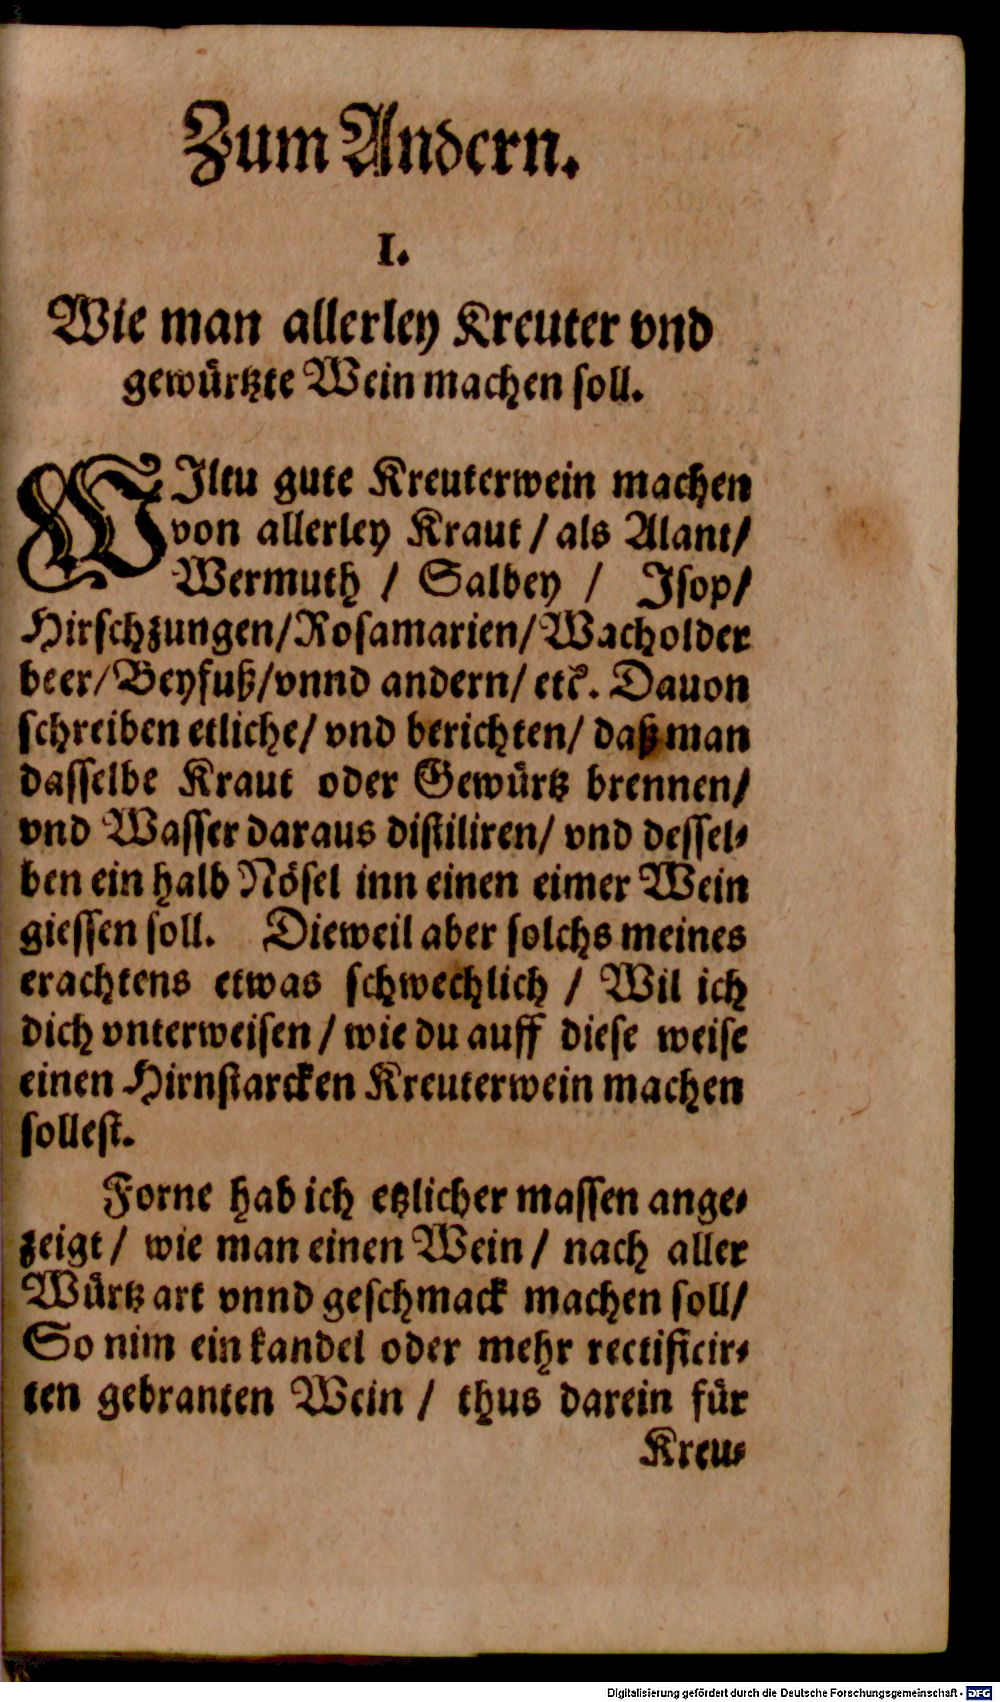 Zum Andern.
I.
Wie man allerley Kreuter vnd
gewürtzte Wein machen soll.
WIltu gute Kreuterwein machen
von allerley Kraut / als Alant/
Wermuth / Salbey / Isop/
Hirschzungen/Rosamarien/Wacholder
beer/Beyfuß/vnnd andern/ etc. Dauon
schreiben etliche/ vnd berichten/ daß man
dasselbe Kraut oder Gewürtz brennen/
vnd Wasser daraus distiliren/ vnd dessel-
ben ein halb Nösel inn einen eimer Wein
giessen soll. Dieweil aber solchs meines
erachtens etwas schwechlich / Wil ich
dich vnterweisen / wie du auff diese weise
einen Hirnstarcken Kreuterwein machen
sollest.
Forne hab ich etzlicher massen ange-
zeigt/ wie man einen Wein/ nach aller
Würtz art vnnd geschmack machen soll/
So nim ein kandel oder mehr rectificir-
ten gebranten Wein / thus darein für
Kreu-
Digitalisierung gefördert durch die Deutsche Forschungsgemeinschaft - DFG